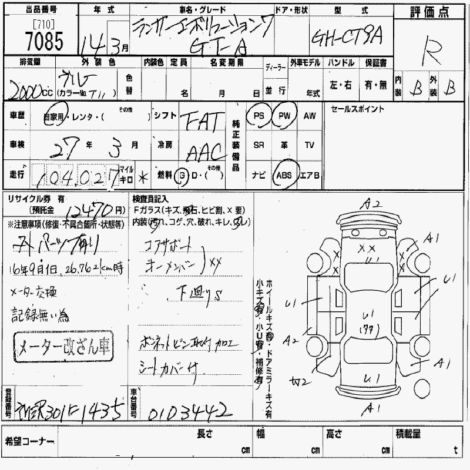 出品番号 [710] 7085
年式 14年3月
車名・グレード ランサーエボリューション7 GT-A
ドア・形状 型式 GH-CT9A
評価点 R
内装 B 外装 B
排気量 2000cc
外装色 (カラー№ )
色替
内装色 定員 名
名変期限 月 日
ディーラー 並行
外車モデル 年式
ハンドル 左・右
保証書 有・無
車歴 自家用・レンタ・(その他 )
シフト FAT
純正装備品 PS PW AW
セールスポイント
車検 27年3月
冷房 AAC
SR 革 TV
走行 104,027 マイル キロ *
燃料 G D・(その他 )
ナビ ABS エアB
リサイクル券 有 (預託金 12470円)
検査員記入
Fガラス(キズ、飛石、ヒビ割、X 要)
内装(汚れ、コゲ、穴、破れ、キレ、ダレ)
※注意事項(修復・不具合箇所・状態等)
コアサポート
オーメンバー ××
16年9月1日 26,762km時
メーター交換
記録無い為
下廻りS
メーター改ざん車
ボンネットピン取付加工
シートカバー付
ホイールキズ有・ドアミラーキズ有
小キズ有・小U有・補修有
A2
A1
A1
××
××
U1
U1
U1
(77)
A2
A1
切2
U1
A1
A1
登録番号 301 1435
車台番号 0103442
希望コーナー
長さ cm
幅 cm
高さ cm
積載量 t